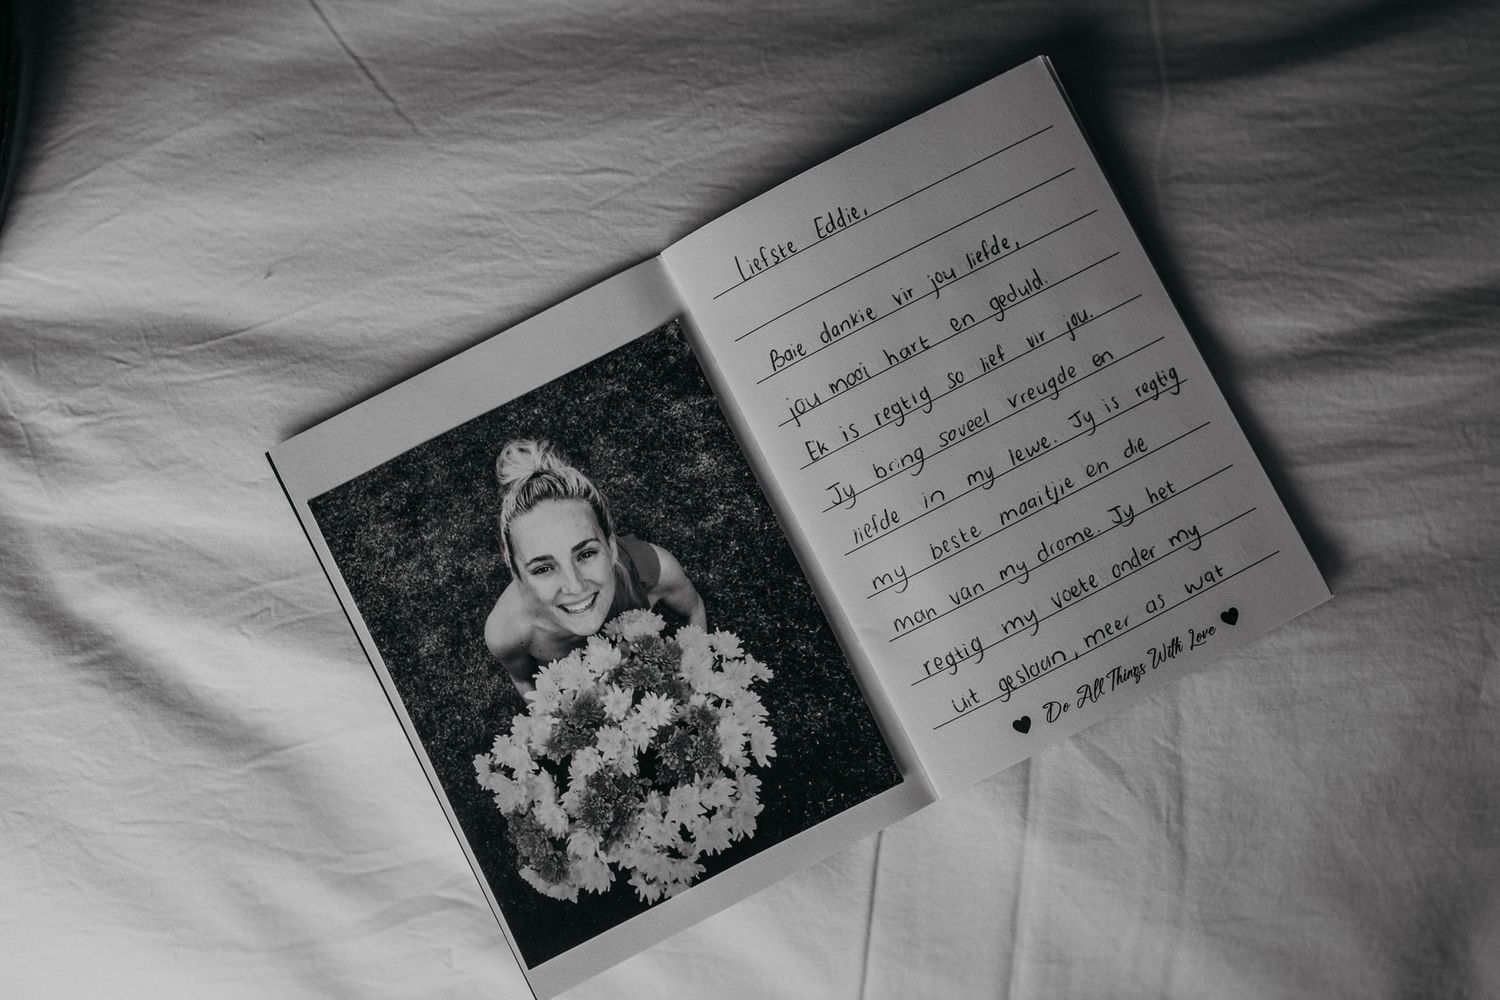 Liefste Eddie,
Baie dankie vir jou liefde,
jou mooi hart en geduld.
Ek is regtig so lief vir jou.
Jy bring soveel vreugde en
liefde in my lewe. Jy is regtig
my beste maaitjie en die
man van my drome. Jy het
regtig my voete onder my
uit geslaan, meer as wat
♥ Do All Things With Love ♥